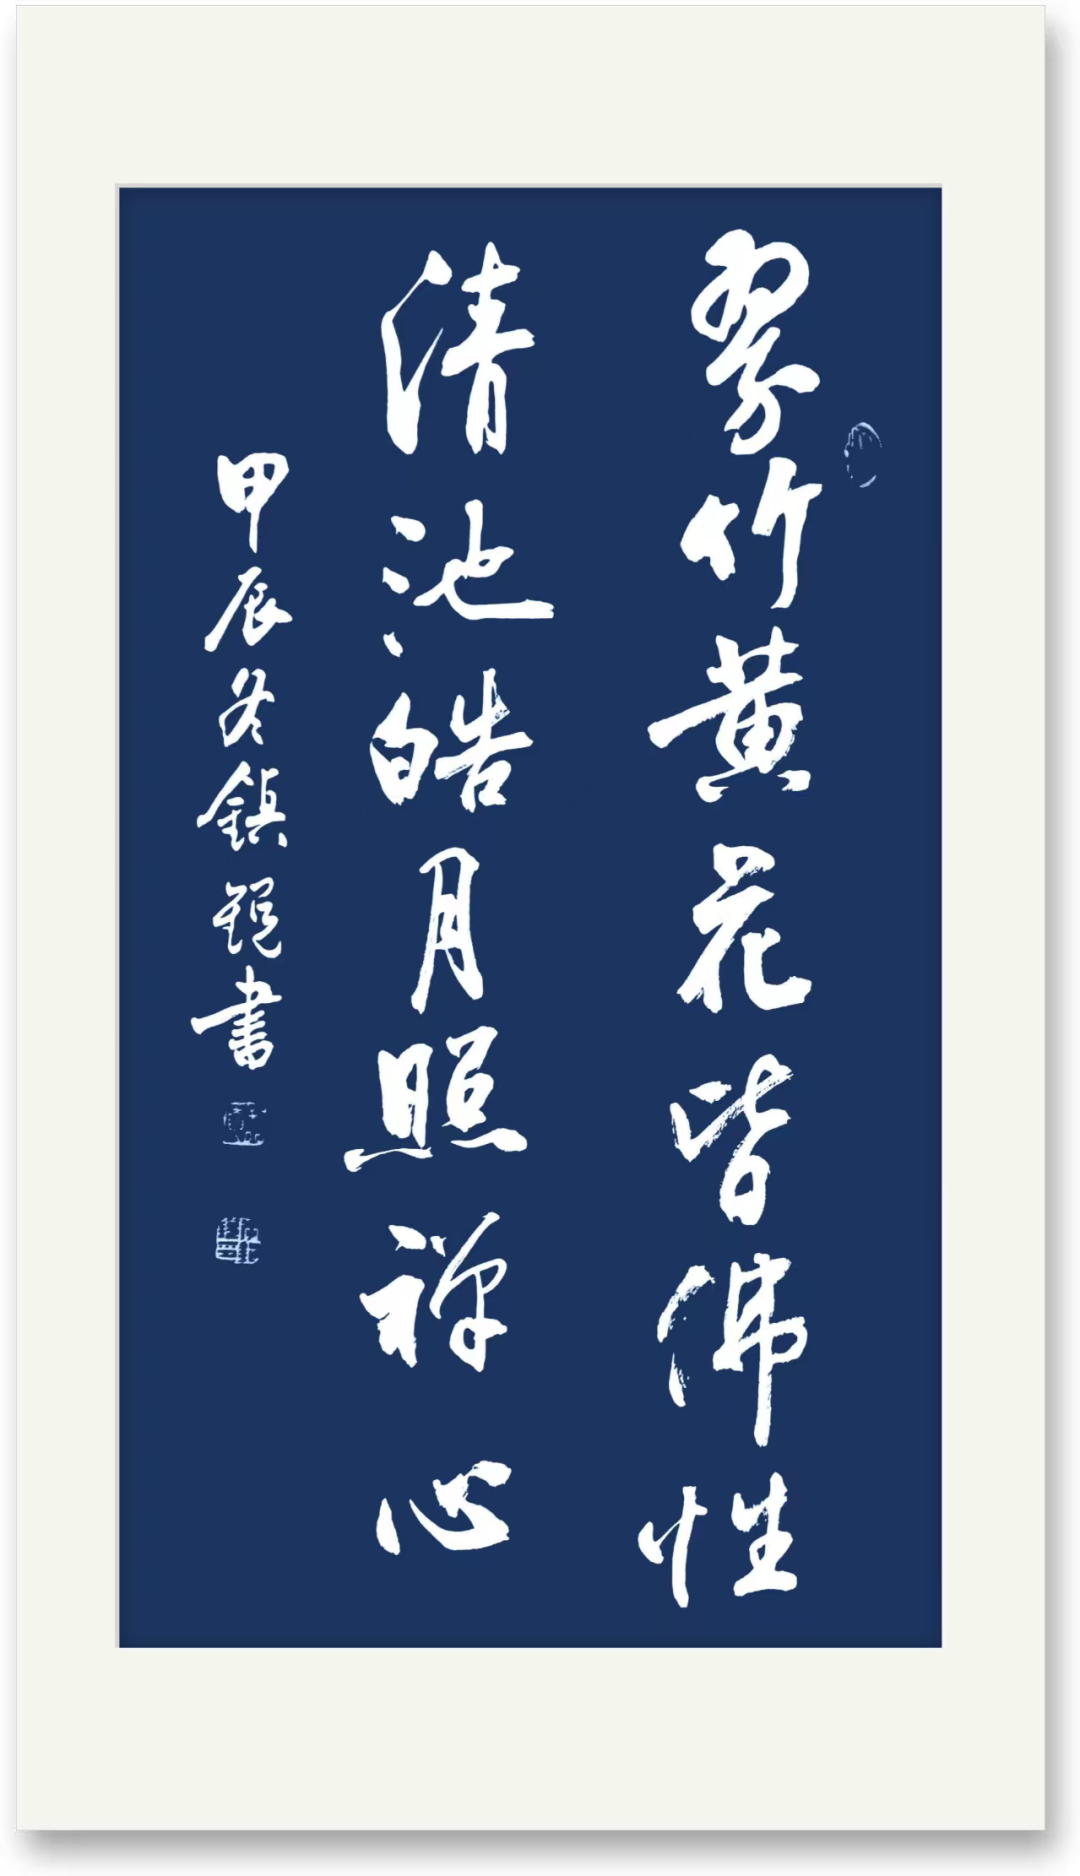 翠竹黄花皆佛性
清池皓月照禅心
甲辰冬鎮锐書